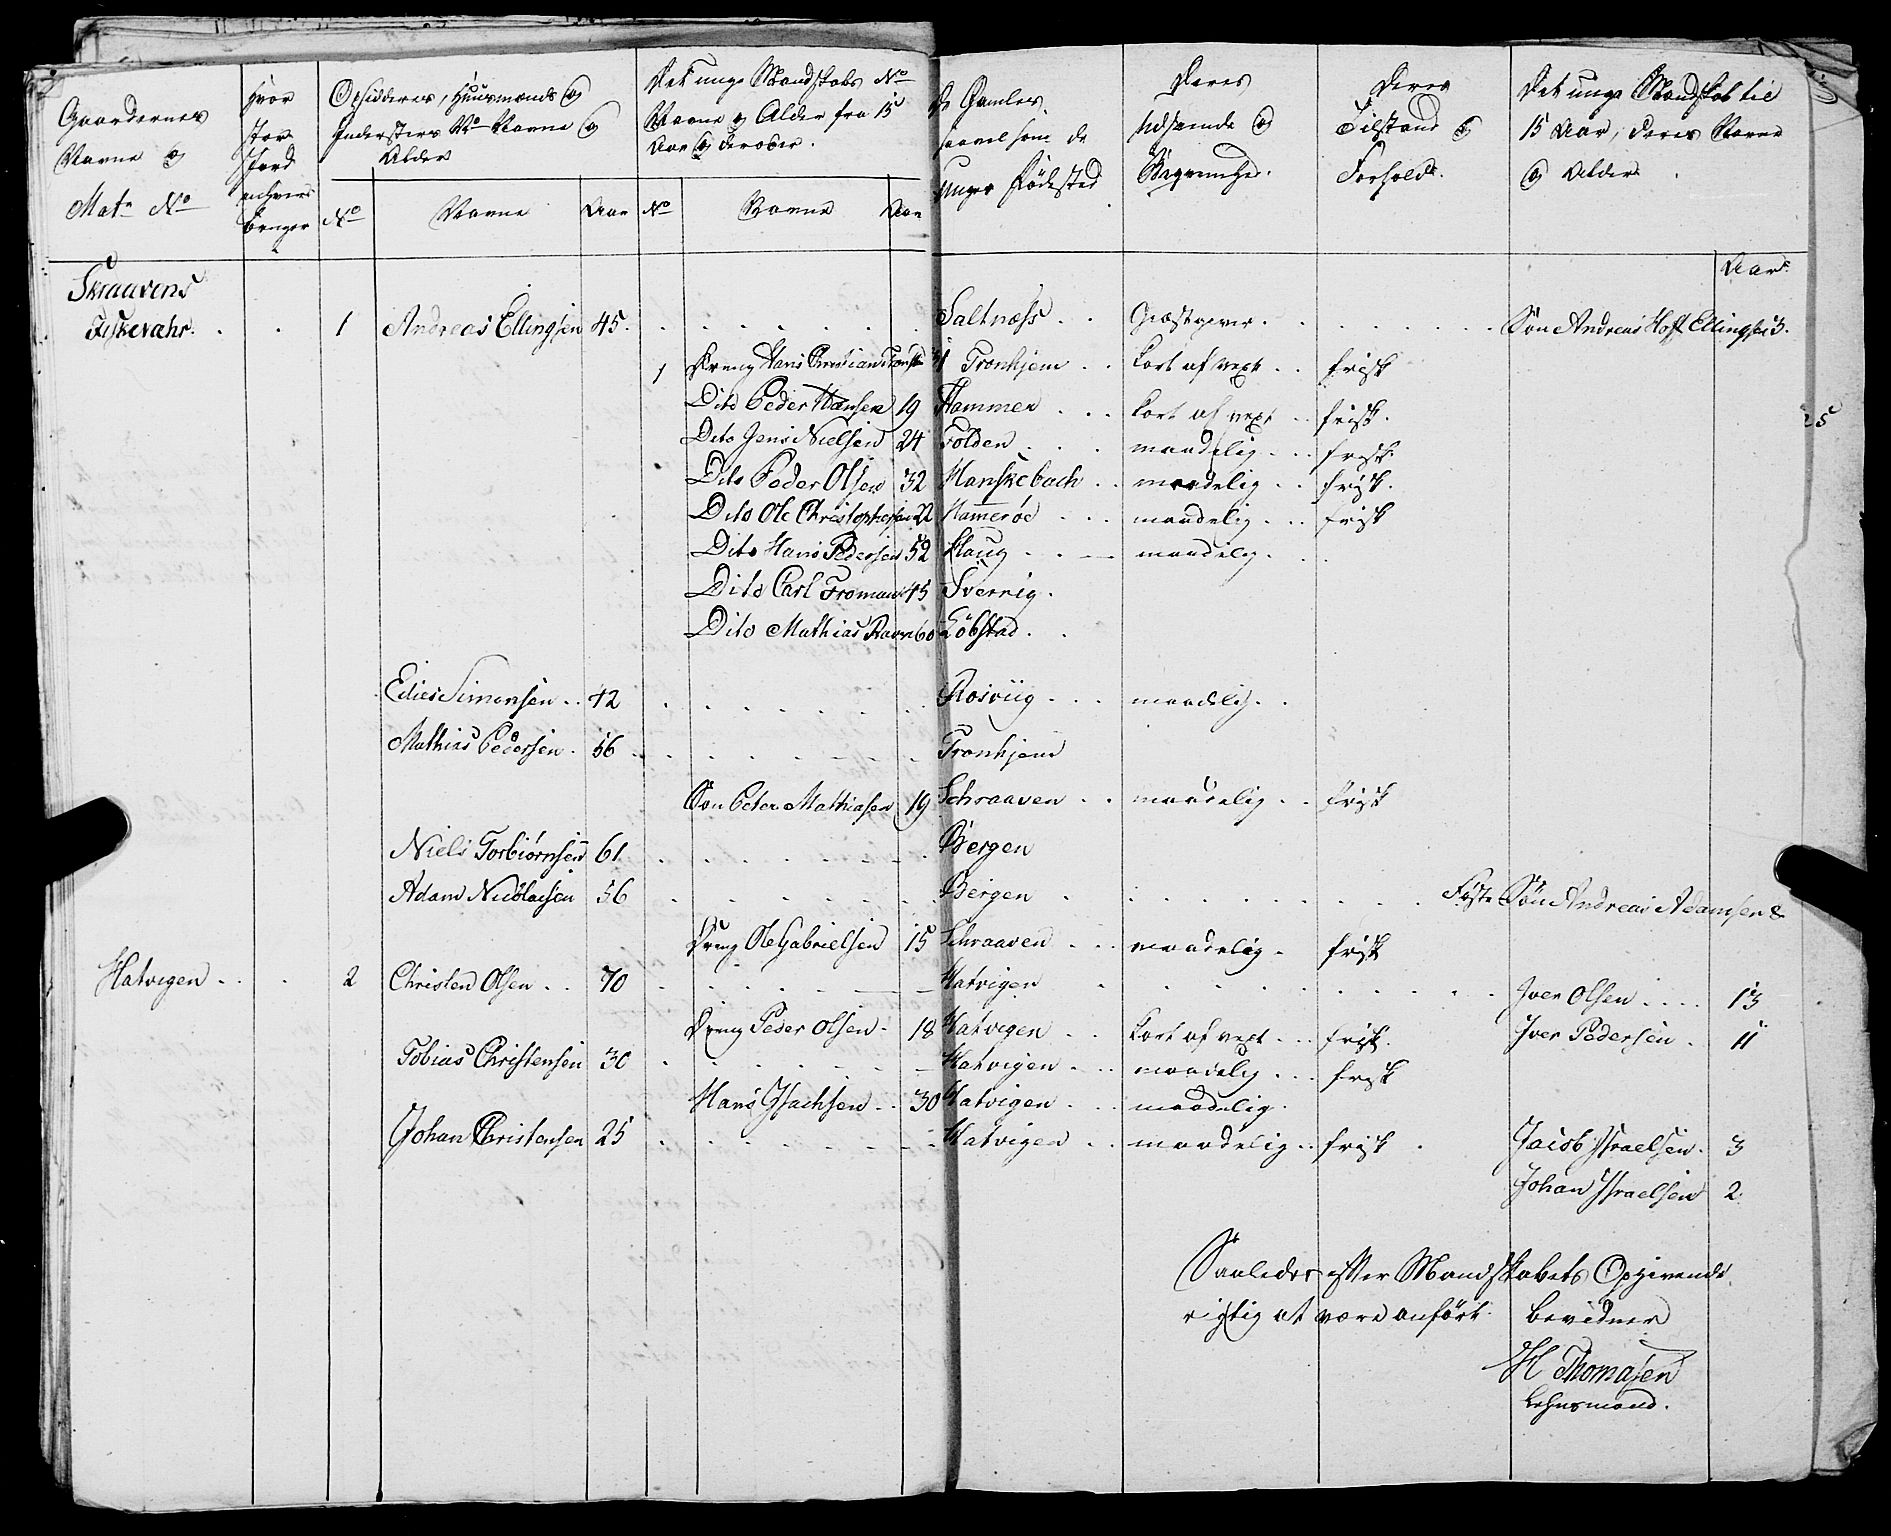 Gaardernes Navne og Mat. No
Hvor stor Jord enhver bruger
Opsiddernes, Huusmænds og Indersters No Navne og Alder
No Navne Aar
Det unge Mandskabs No Navne og Alder fra 15 Aar og derover.
No Navne Aar
De Gamles saavelsom de unges Fødested
Deres Udseende og
Deres Tilstand og Forhold.
Det unge Mandskab til 15 Aar, deres Navne og Alder
Aar
Skraavens Fiskevahr. 1 Andreas Ellingsen 45. Saltnæss Giæstgiver. Søn Andreas Hoff Ellingsen 3.
1 Dreng Hans Christian Tronhjem kort af vext frisk
Dito Peder Hansen 19 Hammer kort af vext frisk.
Dito Jens Nielsen 24 Folden maadelig frisk.
Dito Peder Olsen 32 Hanskebach maadelig frisk.
Dito Ole Christophersen 22 Hammerøe maadelig frisk
Dito Hans Pedersen 52 Haug maadelig.
Dito Carl Froman 45 Sverrig.
Dito Mathias Ravn 60 Løbstad.
Elies Simonsen 42 Rosviig maadelig.
Mathias Pedersen 56 Tronhjem
Søn Peter Mathiasen 19 Schraaven maadelig frisk
Niels Torbiørnsen 61 Bergen
Adam Nicolaisen 56 Bergen Foster Søn Andreas Adamsen 8
Dreng Ole Gabrielsen 15 Schraaven maadelig frisk
Hatvigen 2 Christen Olsen 70 Hatvigen Iver Olsen 13
Dreng Peder Olsen 18 Hatvigen kort af vext frisk. Iver Pedersen 11
Tobias Christensen 30 Hatvigen maadelig frisk
Hans Isachsen 30 Hatvigen maadelig.
Johan Christensen 25 Hatvigen maadelig frisk Jacob Israelsen 3
Johan Israelsen 2.
25
Saaledes efter Mandskabets Opgivende
rigtig at være anført bevidner
H Thomasen
Lehnsmand.